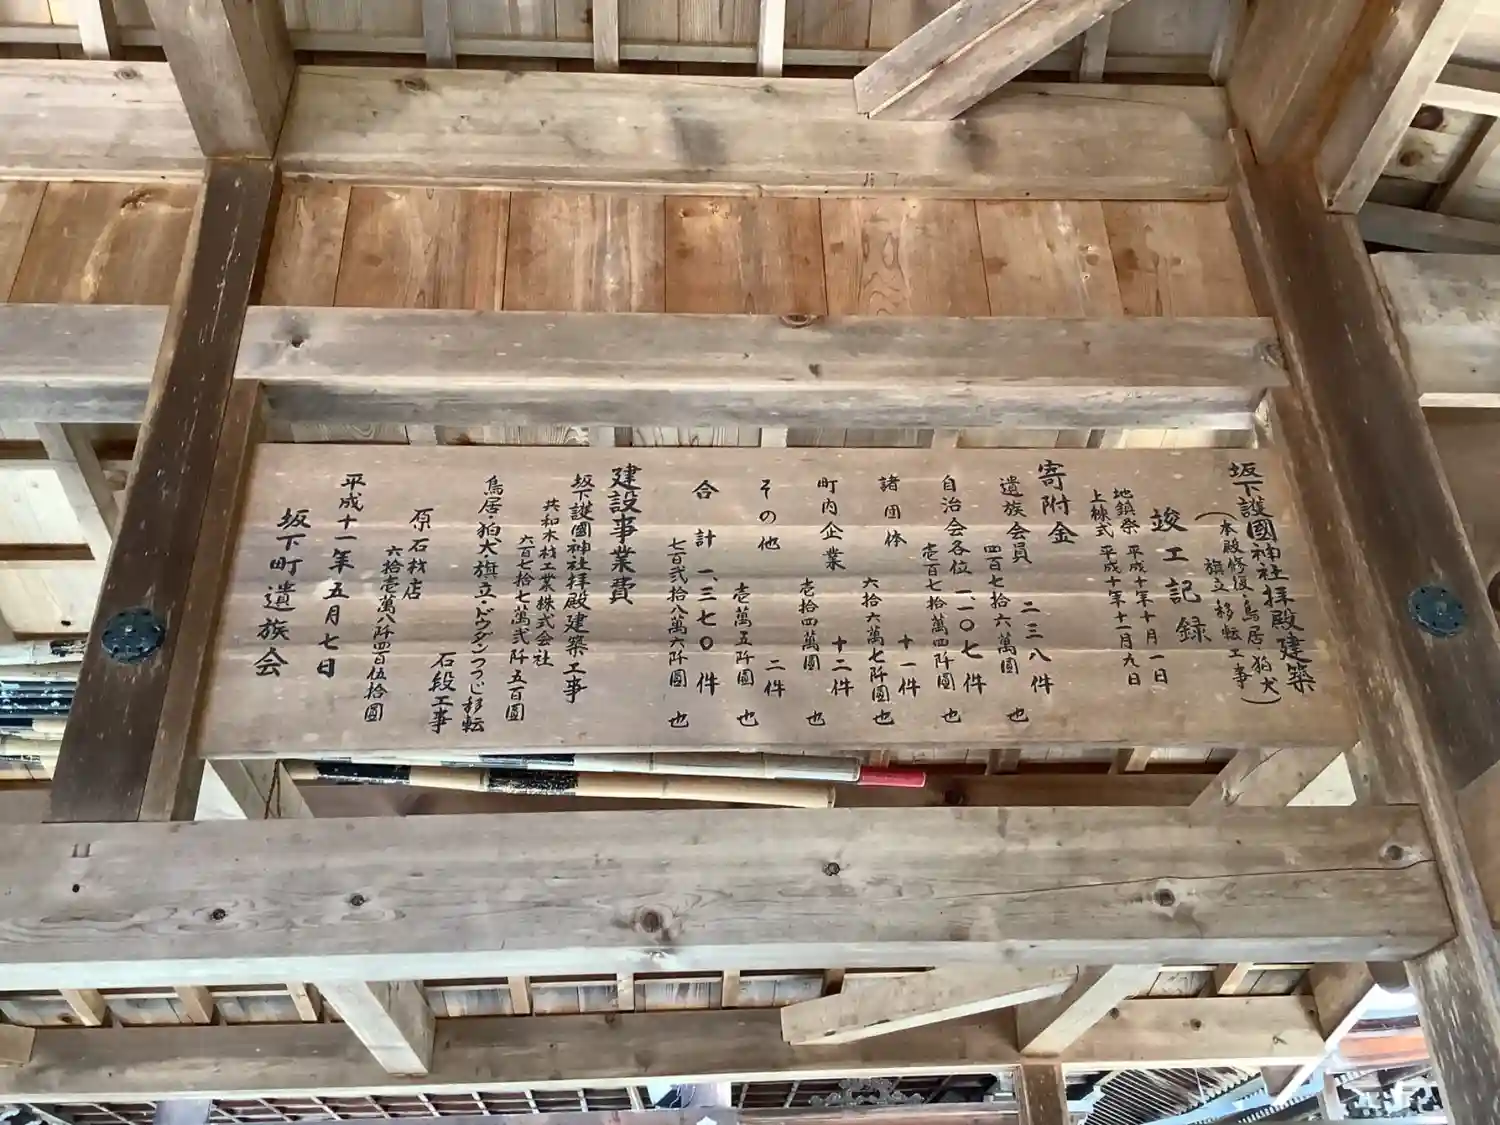 坂下護國神社拝殿建築
(本殿修復・鳥居・狛犬)
旗立移転工事
竣工記録
地鎮祭 平成十年十月一日
上棟式 平成十年十一月九日
寄附金
遺族会員 二三八件
四百七拾六萬圓也
自治会各位 一、一〇七件
壱百七拾萬四阡圓也
諸団体 十一件
六拾六萬七阡圓也
町内企業 十二件
壱拾四萬圓也
その他 二件
壱萬五阡圓也
合計 一、三七〇件
七百弐拾八萬六阡圓也
建設事業費
坂下護國神社拝殿建築工事
共和木材工業株式会社
六百七拾七萬弐阡五百圓
鳥居・狛犬・旗立・ドウダンつつじ移転
石段工事
原石材店
六拾壱萬八阡四百伍拾圓
平成十一年五月七日
坂下町遺族会